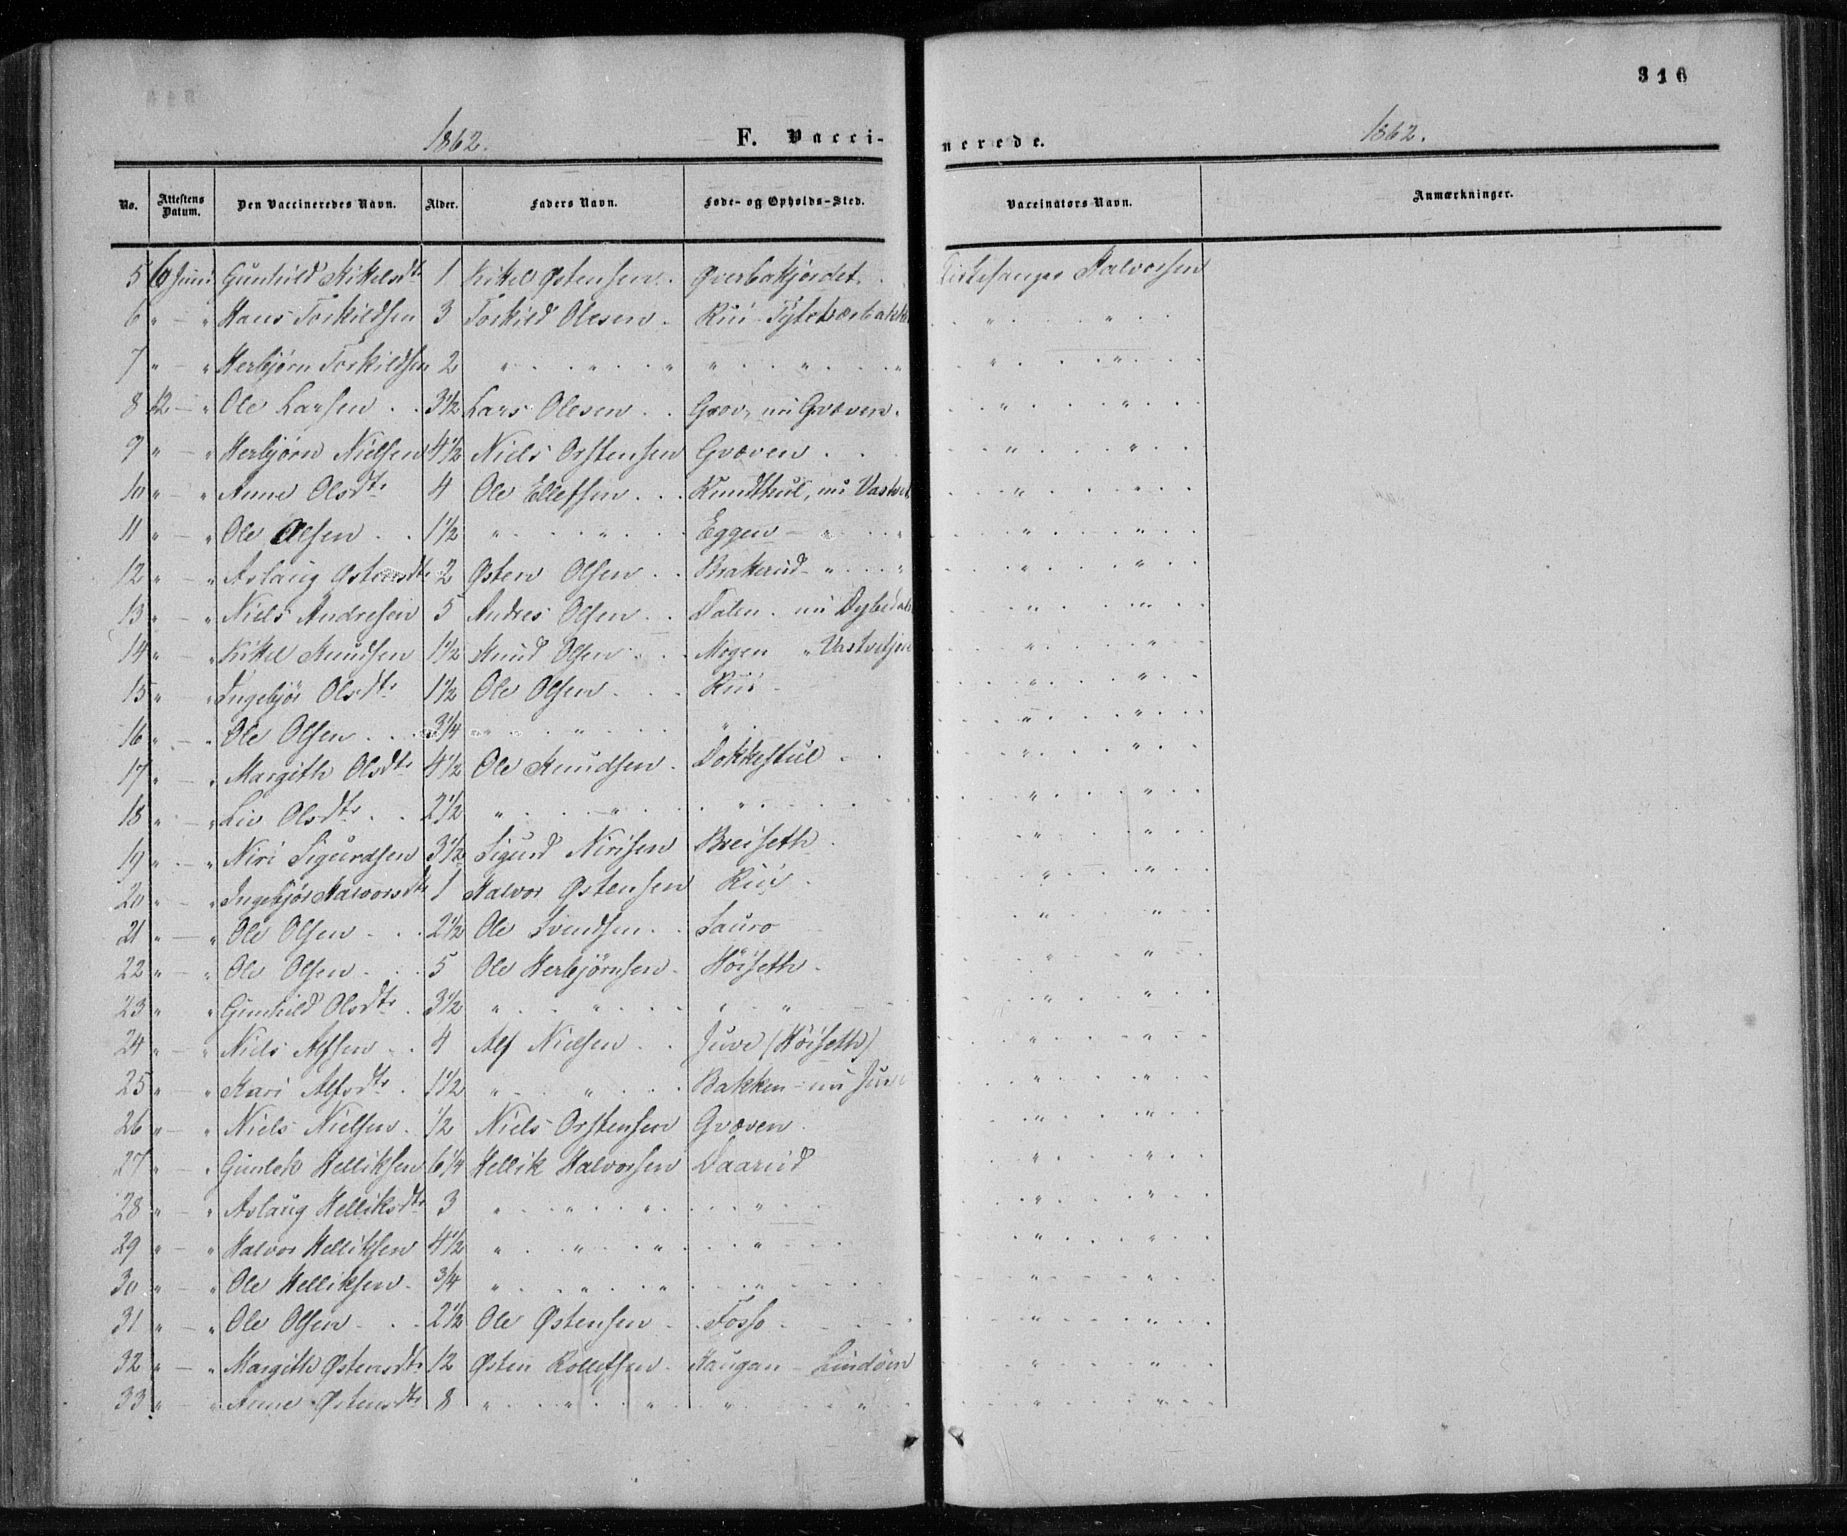 316
1862. F. Vacci- nerede. 1862.
No. Attestens Datum. Den Vaccineredes Navn. Alder. Faders Navn. Føde- og Opholds-Sted. Vaccinators Navn. Anmærkninger.
5 6 Juni Gunhild Kittelsdtr 1 Kittel Østensen. Øverbakjordet. Halvorsen
6 " - " Hans Torkildsen 3 Torkild Olesen. Rui " "
7 " - " Herbjørn Torkildsen 2 " " " " " " " "
8 12 - " Ole Larsen 3 1/2 Lars Olesen Grov, nu Gvæven. " "
9 " - " Herbjørn Nielsen 4 1/2 Niels Orstensen Gvæven " "
10 " - " Anne Olsdtr 4 Ole Ellefsen Rundhul, nu " "
11 " - " Ole Olsen 1 1/2 " " Eggen - " " " "
12 " - " Aslaug Østensdtr 2 Østen Olsen Brakerud " " " "
13 " - " Niels Andresen 5 Andres Olsen Dalen. nu " "
14 " - " Kittel Knudsen 1 1/2 Knud Olsen Mogen " " "
15 " - " Ingebjør Olsdtr 1 1/2 Ole Olsen Rui " "
16 " - " Ole Olsen 3 1/4 " " " " "
17 " - " Margith Olsdtr 4 1/2 Ole Knudsen. Dokkestul " "
18 " - " Liv Olsdtr 2 1/2 " " " " "
19 " - " Niri Sigurdsen 3 1/2 Sigurd Nirisen Breiseth " "
20 " - " Ingebjør Halvorsdtr 1 Halvor Østensen Rui " "
21 " - " Ole Olsen 2 1/2 Ole Svendsen. Sauro " "
22 " - " Ole Olsen 5 Ole Herbjørnsen. Höiseth. " "
23 " " Gunhild Olsdtr. 3 1/2 " " " " " "
24 " - " Niels Alfsen 4 Alf Nielsen Juve (Höiseth) " "
25 " - " Kari Alfsdtr. 1 1/2 " " Bakken - nu " "
26 " - " Niels Nielsen. 1/2 Niels Orstensen Gvæven. " "
27 " - " Gunlek Helliksen 6 1/4 Hellik Halvorsen Daarud " "
28 " - " Aslaug Helliksdtr 3 " " " " " "
29 " - " Halvor Helliksen 4 1/2 " " " " " "
30 " - " Ole Helliksen 3/4 " " " " " "
31 " - " Ole Olsen 2 1/2 Ole Østensen Fosso " "
32 " - " Margith Østensdtr 12 Østen Rollefsen. Haugan - " "
33 " - " Anne Østensdtr 8 " " " " " " "